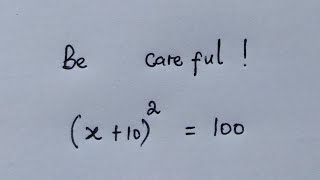 Be careful !
(x +10)² = 100